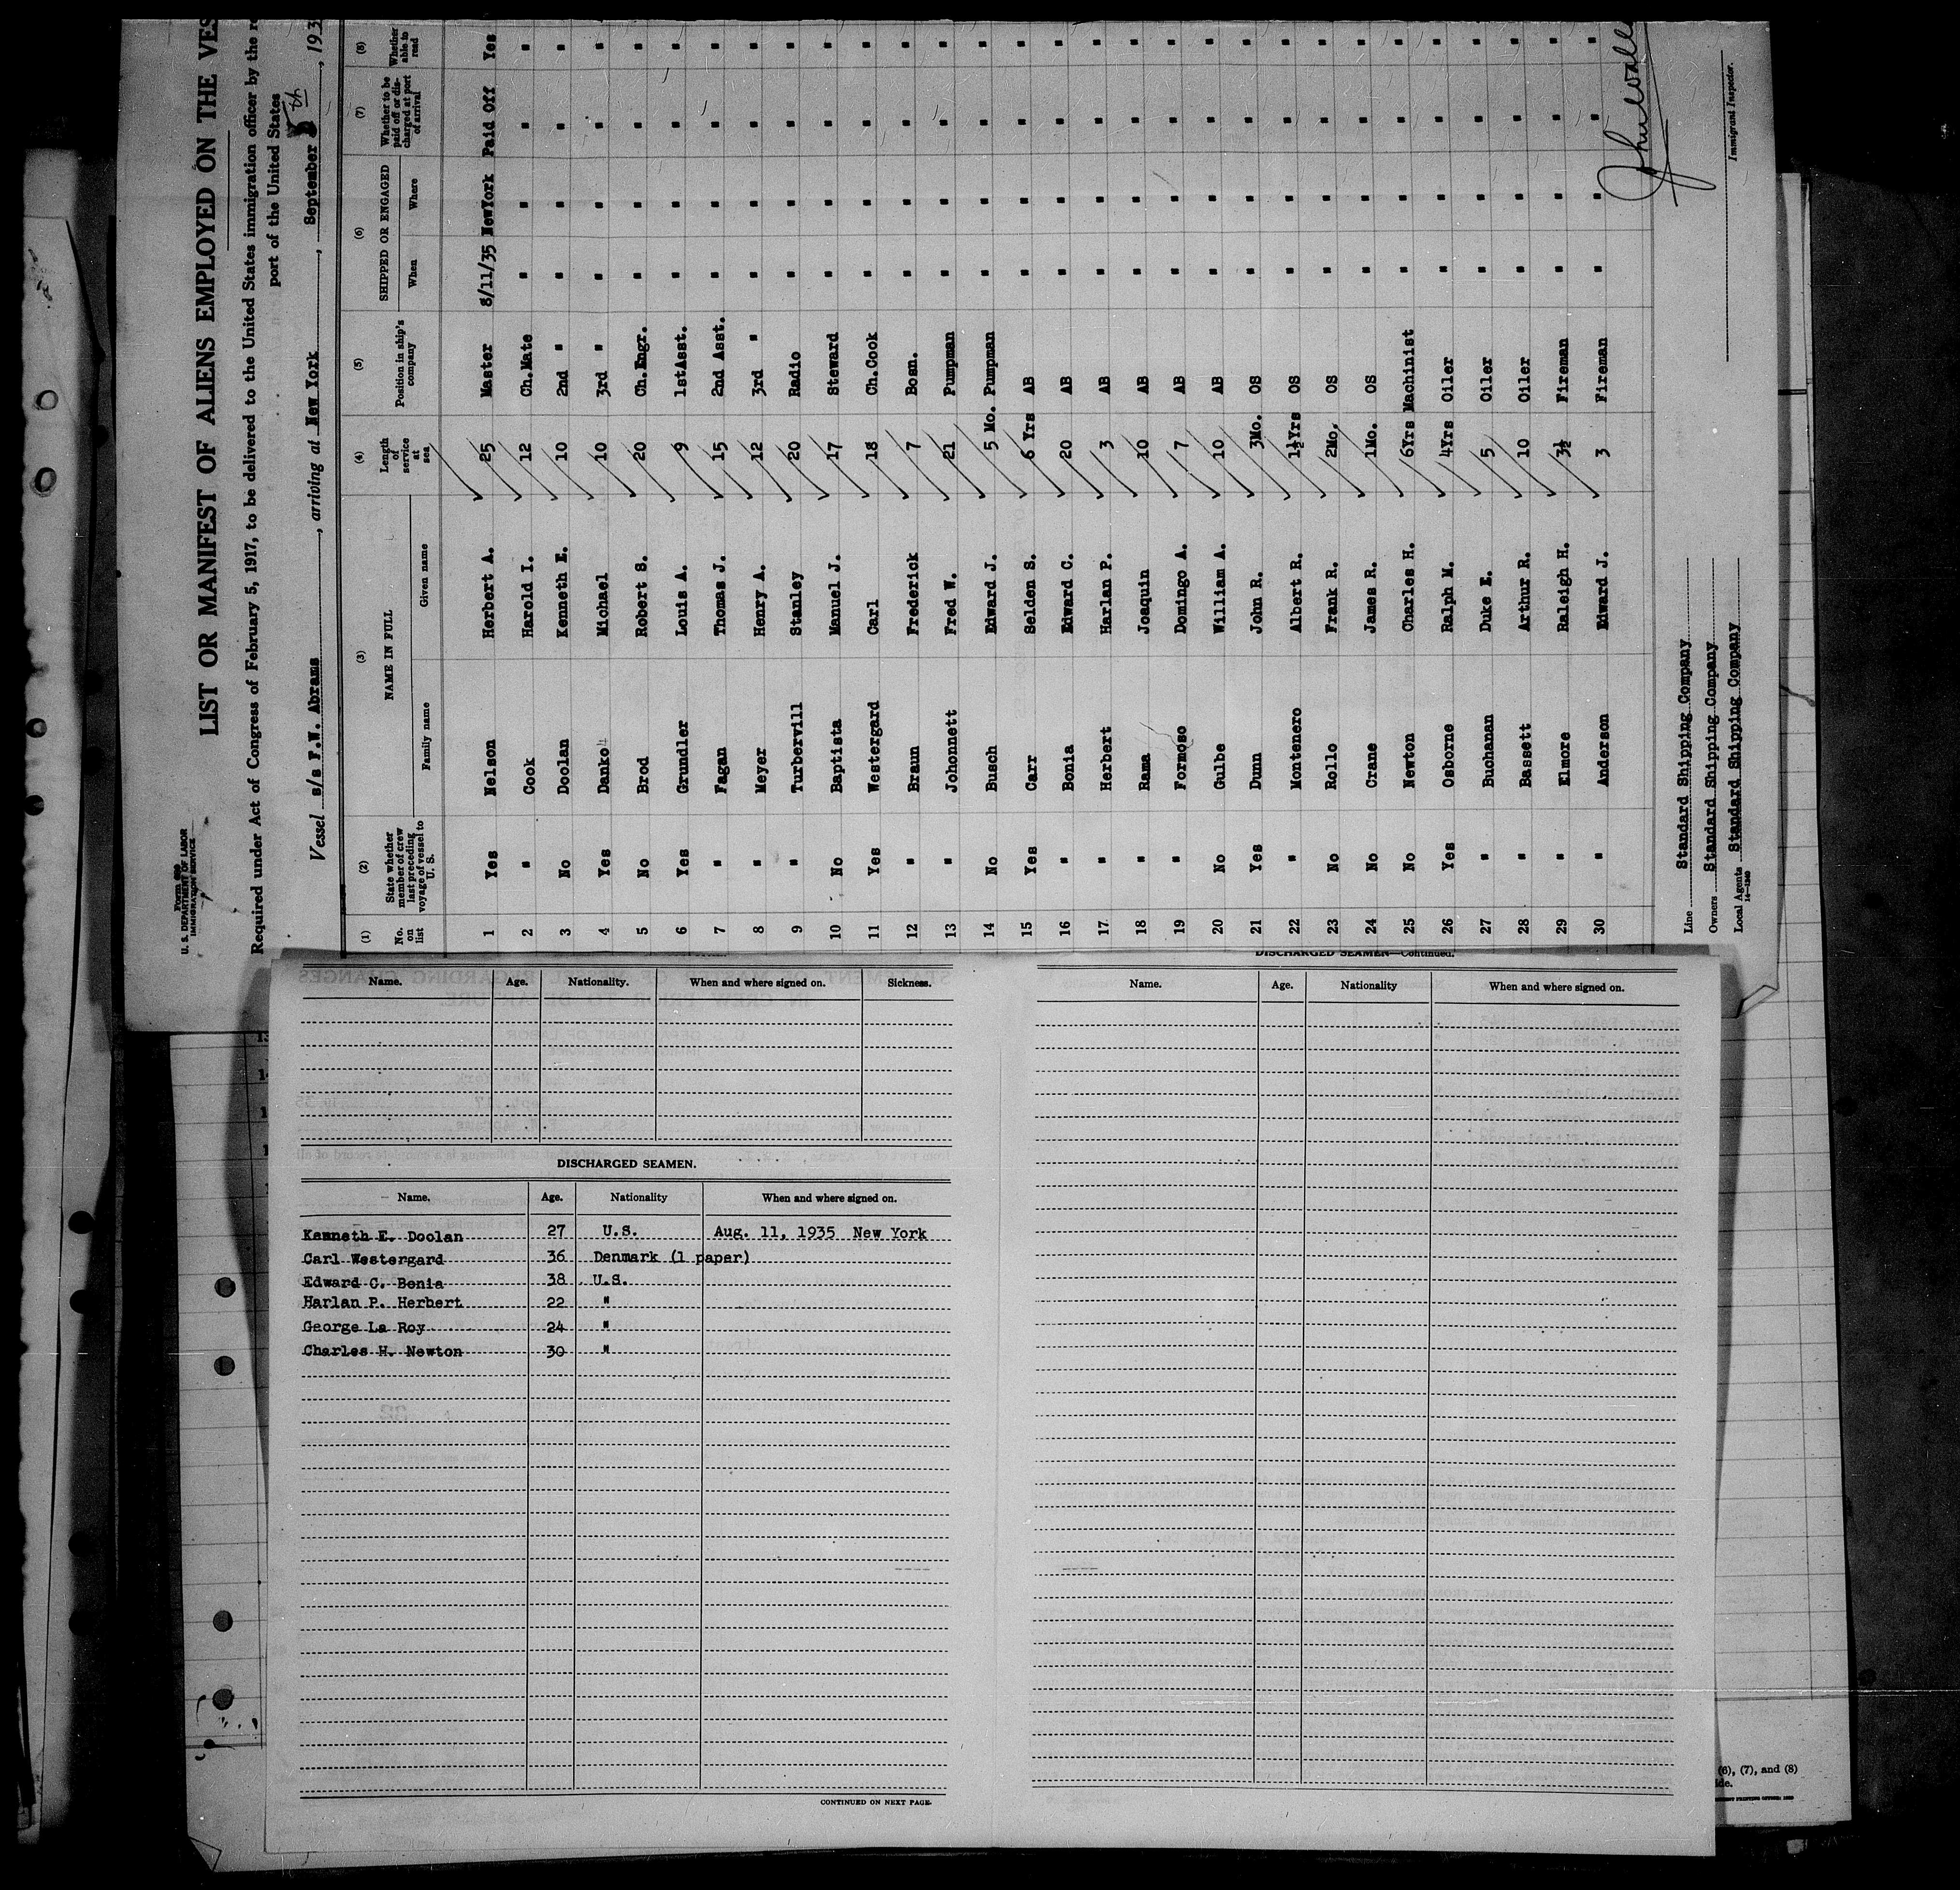 Form 680
U. S. DEPARTMENT OF LABOR
IMMIGRATION SERVICE
LIST OR MANIFEST OF ALIENS EMPLOYED ON THE VES
Required under Act of Congress of February 5, 1917, to be delivered to the United States immigration officer by the
port of the United States
Vessel s/s F.W. Abrams, arriving at New York, September 5th, 193
(1) (2) (3) (4) (5) (6) (7) (8)
No. on list State whether member of crew last preceding voyage of vessel to U. S. NAME IN FULL Family name Given name Length of service at sea Position in ship's company SHIPPED OR ENGAGED When Where Whether to be paid off or discharged at port of arrival Whether able to read
1 Yes Nelson Herbert A. 25 Master 8/11/35 NewYork Paid Off Yes
2 " Cook Harold I. 12 Ch.Mate " " " "
3 No Doolan Kenneth E. 10 2nd " " " " "
4 Yes Danko Michael 10 3rd " " " " "
5 No Brod Robert S. 20 Ch.Engr. " " " "
6 Yes Grundler Louis A. 9 1stAsst. " " " "
7 " Fagan Thomas J. 15 2nd Asst. " " " "
8 " Meyer Henry A. 12 3rd " " " " "
9 " Turbervill Stanley 20 Radio " " " "
10 No Baptista Manuel J. 17 Steward " " " "
11 Yes Westergard Carl 18 Ch.Cook " " " "
12 " Braun Frederick 7 Bosn. " " " "
13 " Johonnett Fred W. 21 Pumpman " " " "
14 No Busch Edward J. 5 Mo. Pumpman " " " "
15 Yes Carr Selden S. 6 Yrs AB " " " "
16 " Bonia Edward C. 20 AB " " " "
17 " Herbert Harlan P. 3 AB " " " "
18 " Rama Joaquin 10 AB " " " "
19 " Formoso Domingo A. 7 AB " " " "
20 No Gulbe William A. 10 AB " " " "
21 Yes Dunn John R. 3Mo. OS " " " "
22 " Montenero Albert R. 1½Yrs OS " " " "
23 No Rollo Frank R. 2Mo. OS " " " "
24 No Crane James R. 1Mo. OS " " " "
25 No Newton Charles H. 6Yrs Machinist " " " "
26 Yes Osborne Ralph M. 4Yrs Oiler " " " "
27 " Buchanan Duke E. 5 Oiler " " " "
28 " Bassett Arthur R. 10 Oiler " " " "
29 " Elmore Raleigh H. 3½ Fireman " " " "
30 " Anderson Edward J. 3 Fireman " " " "
Line Standard Shipping Company
Owners Standard Shipping Company
Local Agents Standard Shipping Company
Immigrant Inspector.
Name. Age. Nationality. When and where signed on. Sickness.
DISCHARGED SEAMEN.
Name. Age. Nationality When and where signed on.
Kenneth E. Doolan 27 U.S. Aug. 11, 1935 New York
Carl Westergard 36 Denmark (1 paper)
Edward C. Bonia 38 U.S.
Harlan P. Herbert 22 "
George La Roy 24 "
Charles H. Newton 30 "
CONTINUED ON NEXT PAGE.
DISCHARGED SEAMEN—Continued.
Name. Age. Nationality When and where signed on.
(6), (7), and (8)